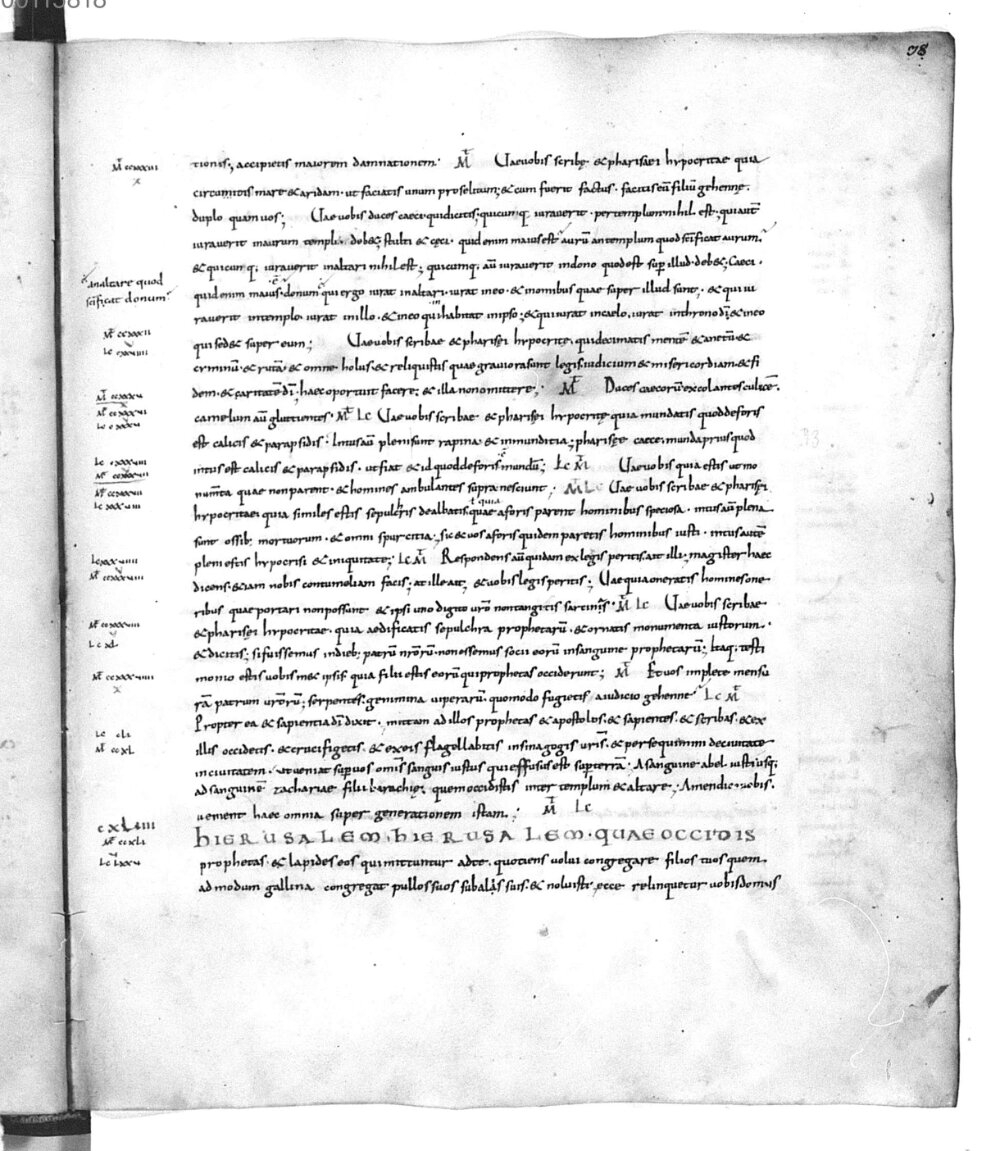 00113818
78
tionis; accipietis maiorem damnationem· M̄ Uae vobis scribę & pharisaei hypocritae quia
circumitis mare & aridam· ut faciatis unum proselitum; & cum fuerit factus· facitis eū filiū gehennę·
duplo quam vos; Uae vobis duces caeci· qui dicitis; quicumq; iuraverit· per templum nihil est; qui aut̄
iuraverit in aurum templi· deb&; stulti & cęci· quid enim maius est aurū an templum quod sc̄ificat aurum·
& quicumq; iuraverit in altari nihil est; quicumq; aū iuraverit in dono quod est sup illud· deb&; Caeci·
an altare quod
sc̄ificat donum
quid enim maius· donum qui ergo iurat in altari· iurat in eo· & in omnibus quae super illud sunt; & qui iu
raverit in templo· iurat in illo· & in eo qui habitat in ipso; & qui iurat in caelo, iurat in throno dī & in eo
qui sed& super eum; Uae vobis scribae & pharisęi hypocritę, qui decimatis mentā & anetū &
ciminū· & rutā· & omne holus· & reliquistis quae graviora sunt legis· iudicium & misericordiam· & fi
dem· & caritatē dī; haec oportuit facere; & illa non omittere; M̄ Duces caecorū excolantes culicē·
camelum aū gluttientes· M̄ Lc Uae vobis scribae & pharisęi hypocritę quia mundatis quod deforis
est calicis & parapsidis· Intus aū pleni sunt rapina & inmunditia; pharisęe caece· munda prius quod
intus est calicis & parapsidis· ut fiat & id quod deforis mundū; Lc M̄ Uae vobis quia estis ut mo
numta quae non parent· & homines ambulantes supra nesciunt; M̄ Lc Uae vobis scribae & pharisęi
hypocritae· quia similes estis sepulchris dealbatis· quae aforis parent hominibus speciosa· intus aū plena
sunt ossib; mortuorum· & omni spurcitia; sic & vos aforis quidem paretis hominibus iusti· intus autē
pleni estis hypocrisi & iniquitate; Lc M̄ Respondens aū quidam ex legis peritis· ait illi; magister haec
dicens· &iam nobis contumeliam facis; at ille ait; & vobis legis peritis; Uae quia oneratis homines one
ribus quae portari non possunt· & ipsi uno digito vrō non tangitis sarcinas· M̄ Lc Uae vobis scribae
& pharisęi hypocritae· quia aedificatis sepulchra prophetarū· & ornatis monumenta iustorum·
& dicitis; si fuissemus in dieb; patrū nrōrū· non essemus socii eorū in sanguine prophetarū; Itaq; testi
monio estis vobis m& ipsis· quia filii estis eorū qui prophetas occiderunt; M̄ Et vos implete mensu
rā patrum vrōrū; serpentes· genimina viperarū· quomodo fugietis a iudicio gehenne Lc M̄
Propter ea & sapientia dī dixit· mittam ad illos prophetas & apostolos· & sapientes· & scribas· & ex
illis occidetis· & crucifigetis· & ex eis flagellabitis in sinagogis vris· & persequimini de civitate
in civitatem· ut veniat sup vos omīs sanguis iustus qui effusus est sup terrā· A sanguine abel iusti usq;
ad sanguinē zachariae filii barachię; quem occidistis inter templum & altare; Amen dico vobis·
venient haec omnia super generationem istam; M̄ Lc
HIERUSALEM, HIERUSALEM· QUAE OCCIDIS
prophetas· & lapides eos qui mittuntur ad te· quotiens volui congregare filios tuos quem
ad modum gallina congregat pullos suos sub alas suis· & noluisti ecce relinquetur vobis domus